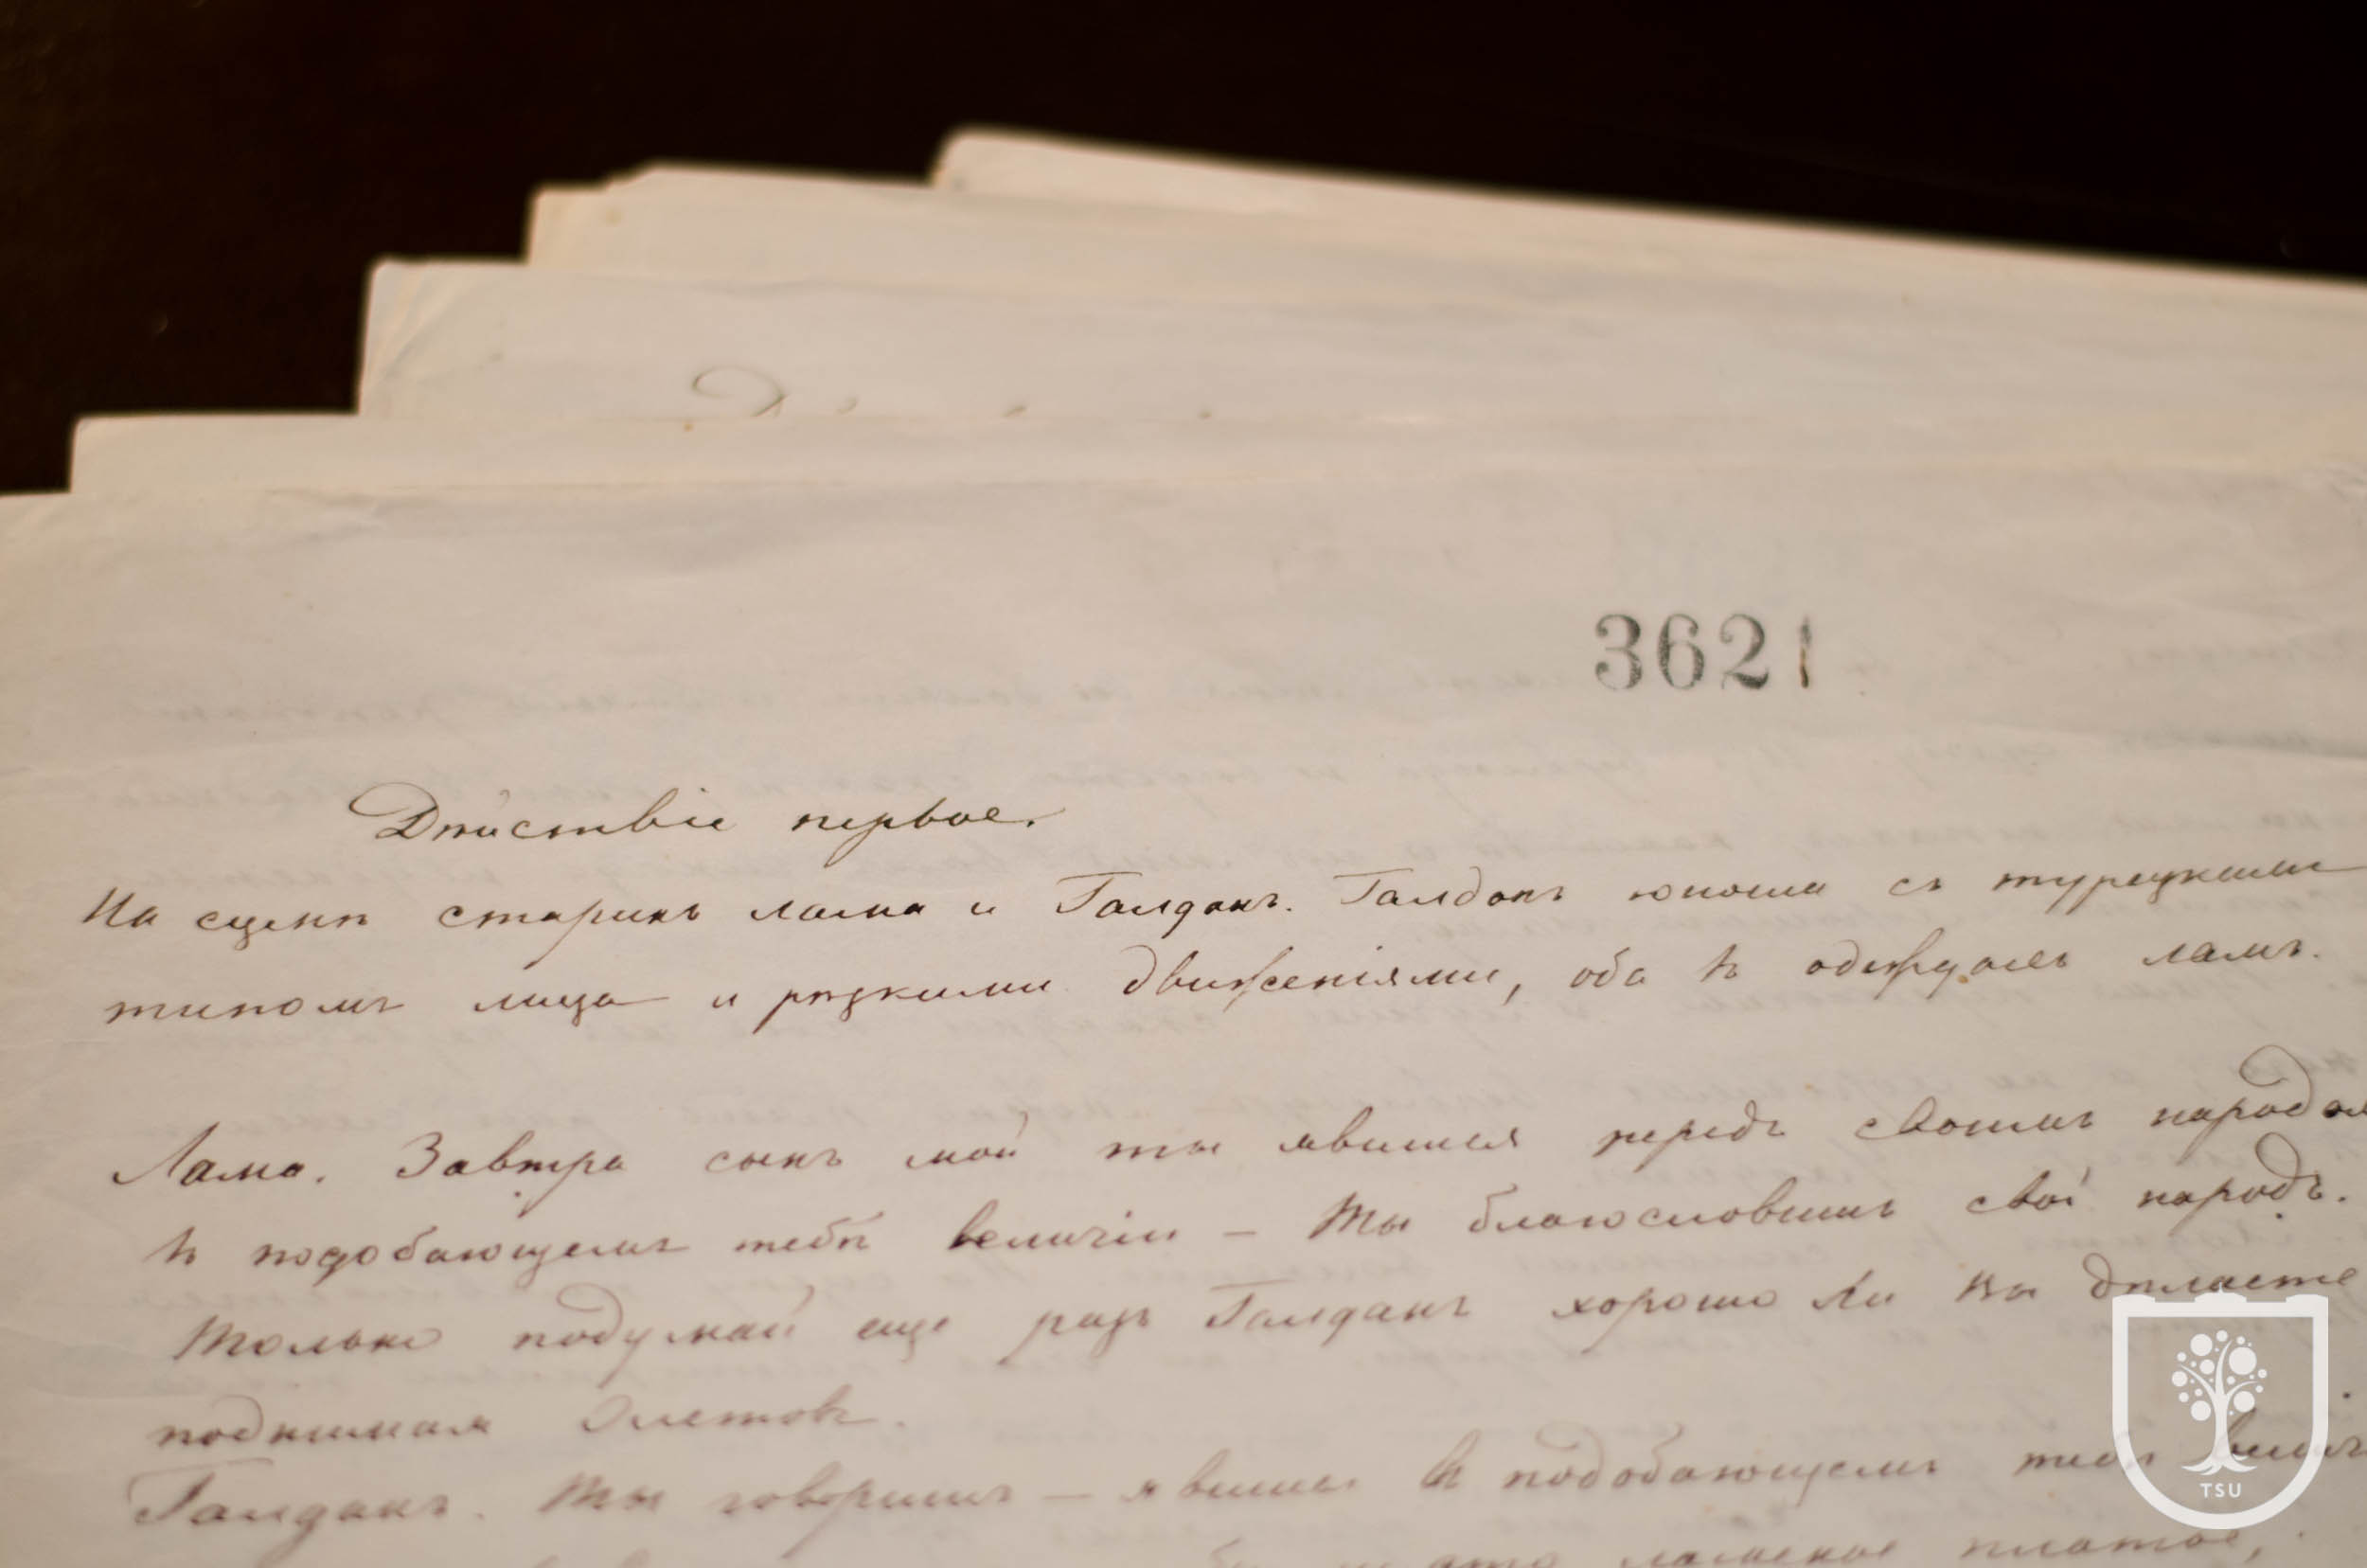 3621
Дѣйствіе первое.
На сценѣ старикъ лама и Галданъ. Галданъ юноша съ турецкимъ
типомъ лица и рѣзкими движеніями, оба въ одеждахъ ламъ.
Лама. Завтра сынъ мой ты явишься передъ своимъ народом
въ подобающемъ тебѣ величіи – Ты благословишь свой народъ.
Только подумай еще разъ Галданъ хорошо ли ты дѣлаете
поднимая Элетовъ.
Галданъ. Ты говоришь – явишься въ подобающемъ тебѣ велич
это ламское платье,
TSU